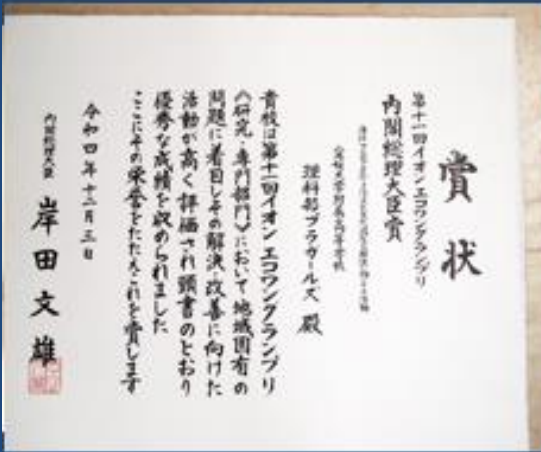 賞状
第十一回イオン エコワングランプリ
内閣総理大臣賞
理科部プラガールズ 殿
貴校は第十一回イオン エコワングランプリ
《研究・専門部門》において地域固有の
問題に着目しその解決・改善に向けた
活動が高く評価され頭書のとおり
優秀な成績を収められました
ここにその栄誉をたたえこれを賞します
令和四年十二月三日
内閣総理大臣 岸田文雄